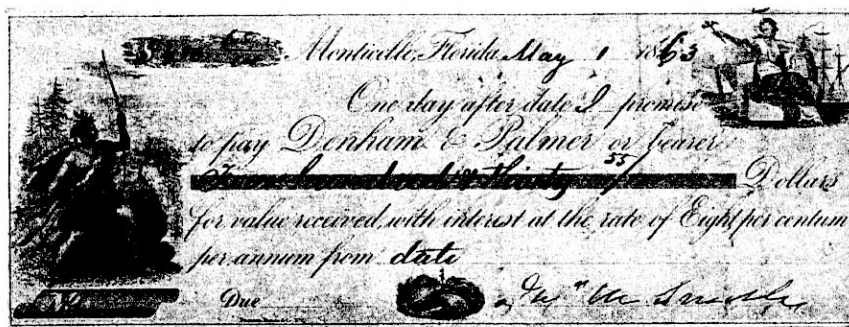 Monticello, Florida May 1 1863
One day after date I promise
to pay Denham & Palmer or bearer
hundred & thirty 55/ Dollars
for value received, with interest at the rate of Eight per centum
per annum from date
Due